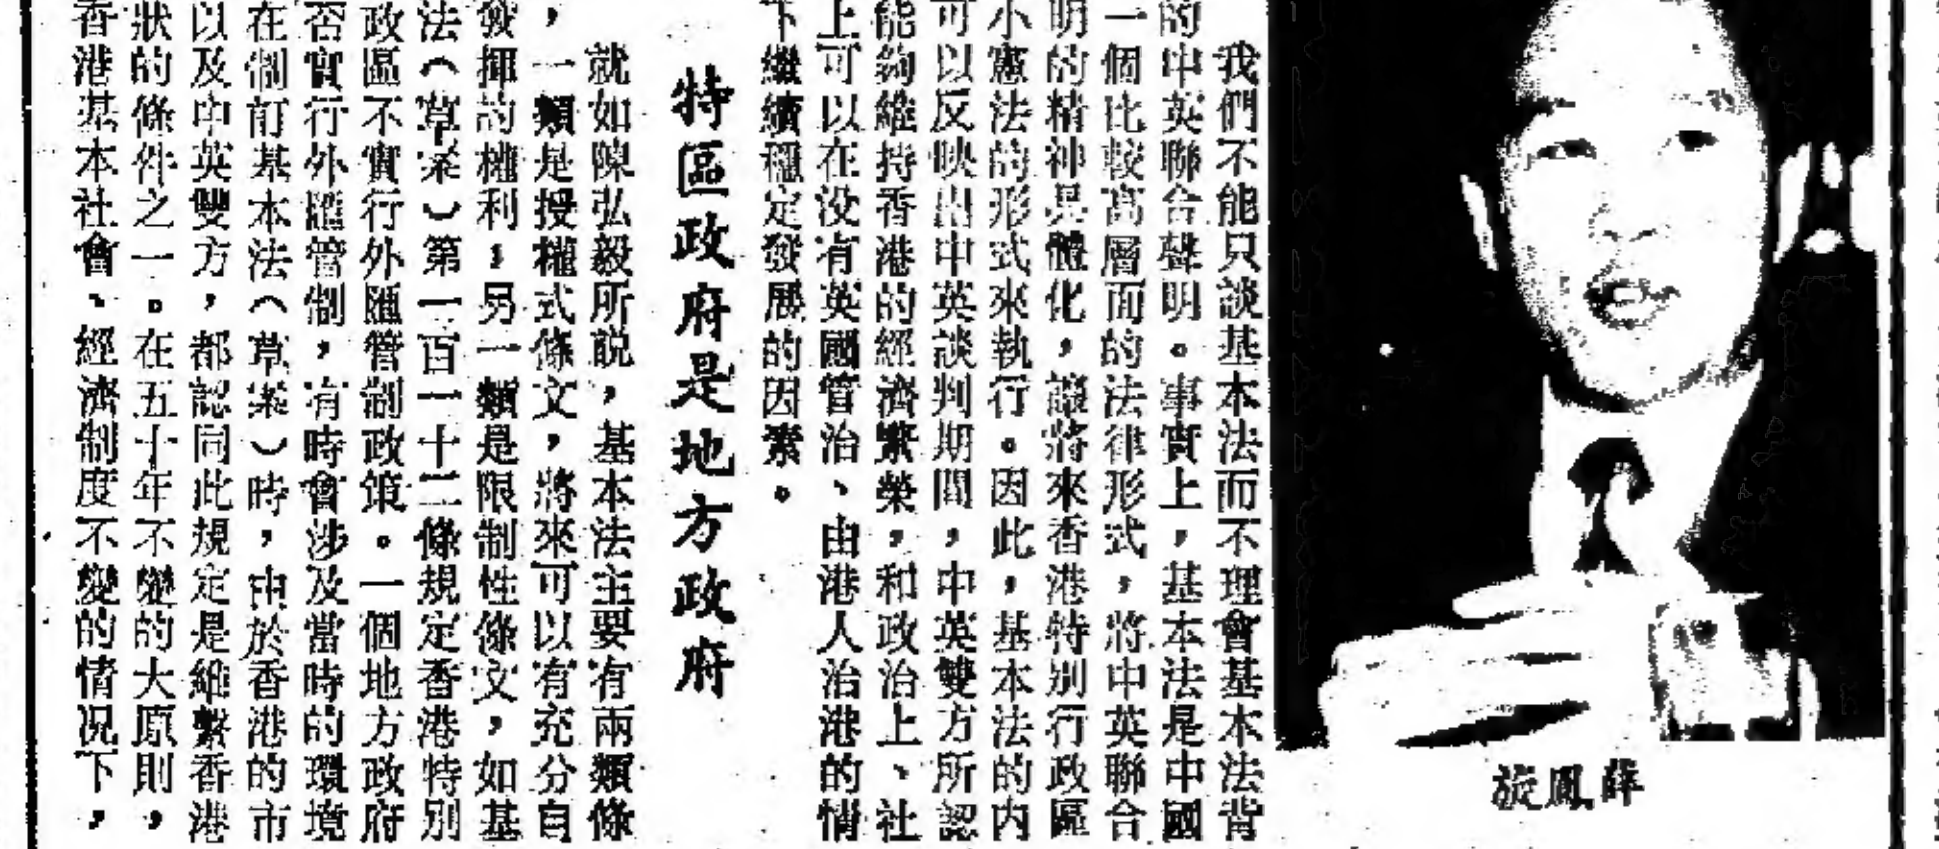 我們不能只談基本法而不理會基本法背
的中英聯合聲明。事實上，基本法是中國
一個比較高層面的法律形式，將中英聯合
明的精神具體化，讓將來香港特別行政區
小憲法的形式來執行。因此，基本法的內
可以反映出中英談判期間，中英雙方所認
能夠維持香港的經濟繁榮，和政治上、社
上可以在没有英國管治、由港人治港的情
下繼續穩定發展的因素。
特區政府是地方政府
就如陳弘毅所說，基本法主要有兩類條
，一類是授權式條文，將來可以有充分自
發揮的權利；另一類是限制性條文，如基
法（草案）第一百一十二條規定香港特別
政區不實行外匯管制政策。一個地方政府
否實行外匯管制，有時會涉及當時的環境
在制訂基本法（草案）時，由於香港的市
以及中英雙方，都認同此規定是維繫香港
狀的條件之一。在五十年不變的大原則，
香港基本社會、經濟制度不變的情況下，
薛鳳旋